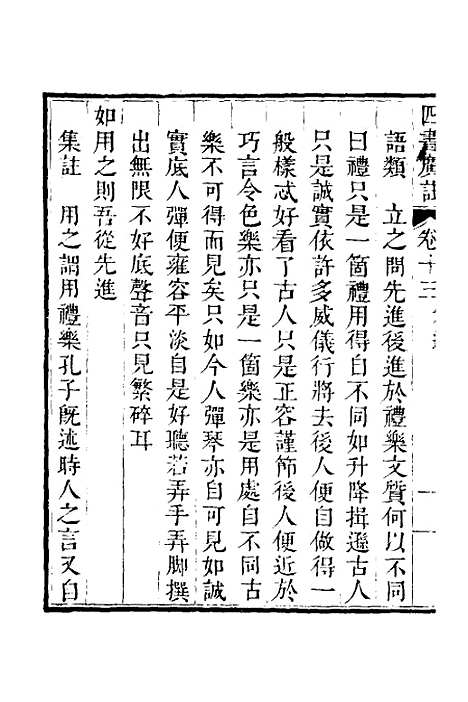 四書廣註 卷十三
語類 立之問先進後進於禮樂文質何以不同
曰禮只是一箇禮用得自不同如升降揖遜古人
只是誠實依許多威儀行將去後人便自做得一
般樣忒好看了古人只是正容謹節後人便近於
巧言令色樂亦只是一箇樂亦是用處自不同古
樂不可得而見矣只如今人彈琴亦自可見如誠
實底人彈便雍容平淡自是好聽若弄手弄脚撰
出無限不好底聲音只見繁碎耳
如用之則吾從先進
集註 用之謂用禮樂孔子既述時人之言又自